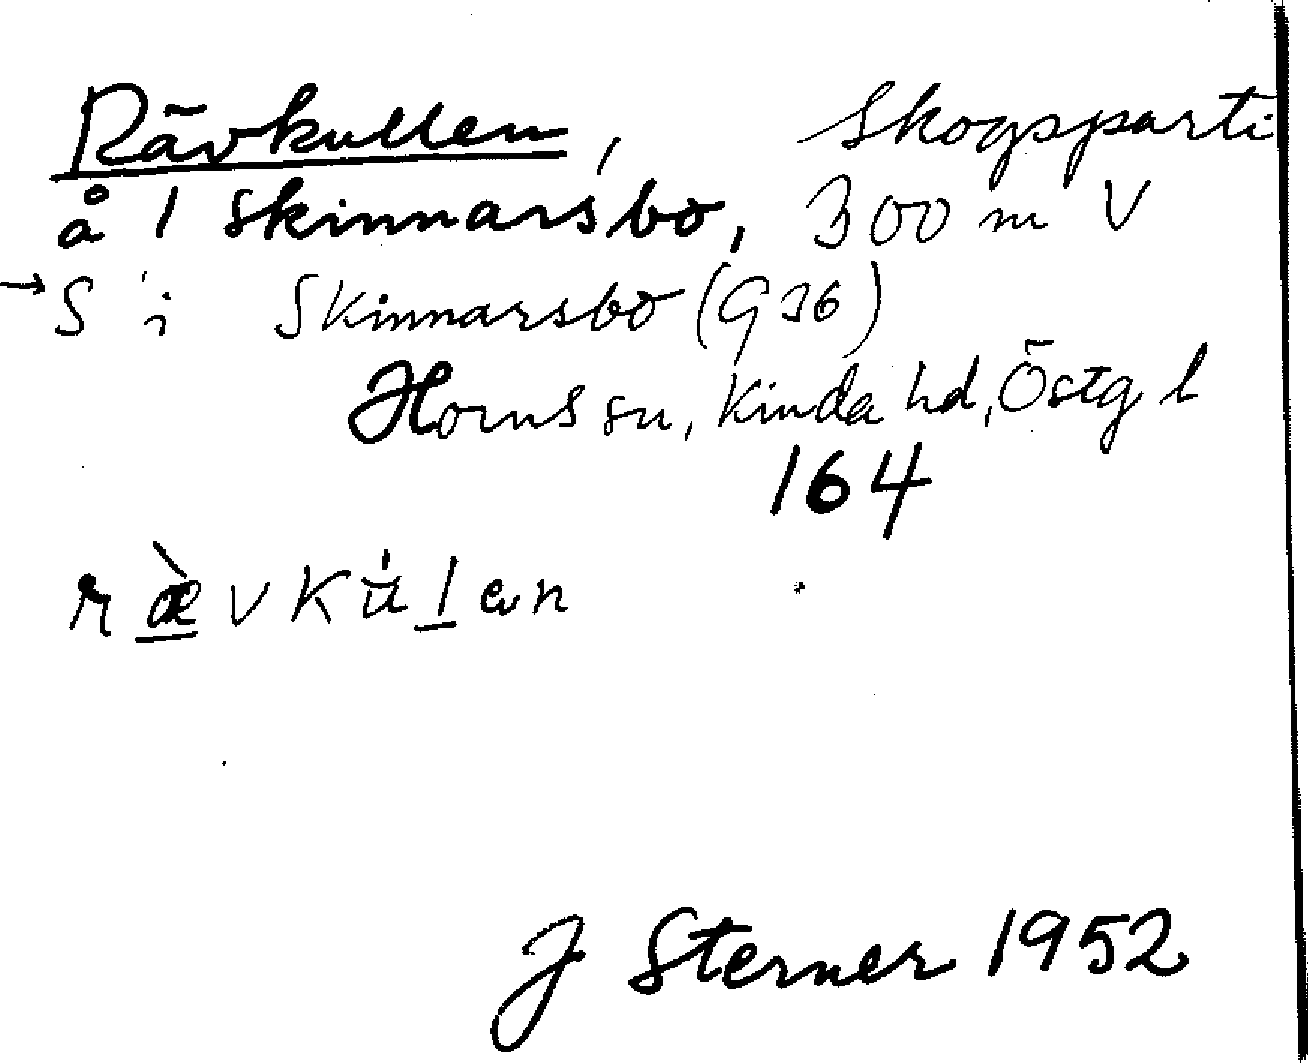 Rävkullen, Skogsparti
å 1 Skinnarsbo, 300 m V
→ S i Skinnarsbo (G 36)
Horns sn, Kinda hd, Östg l
164
r æ̀ v k u̇ l en
J Sterner 1952